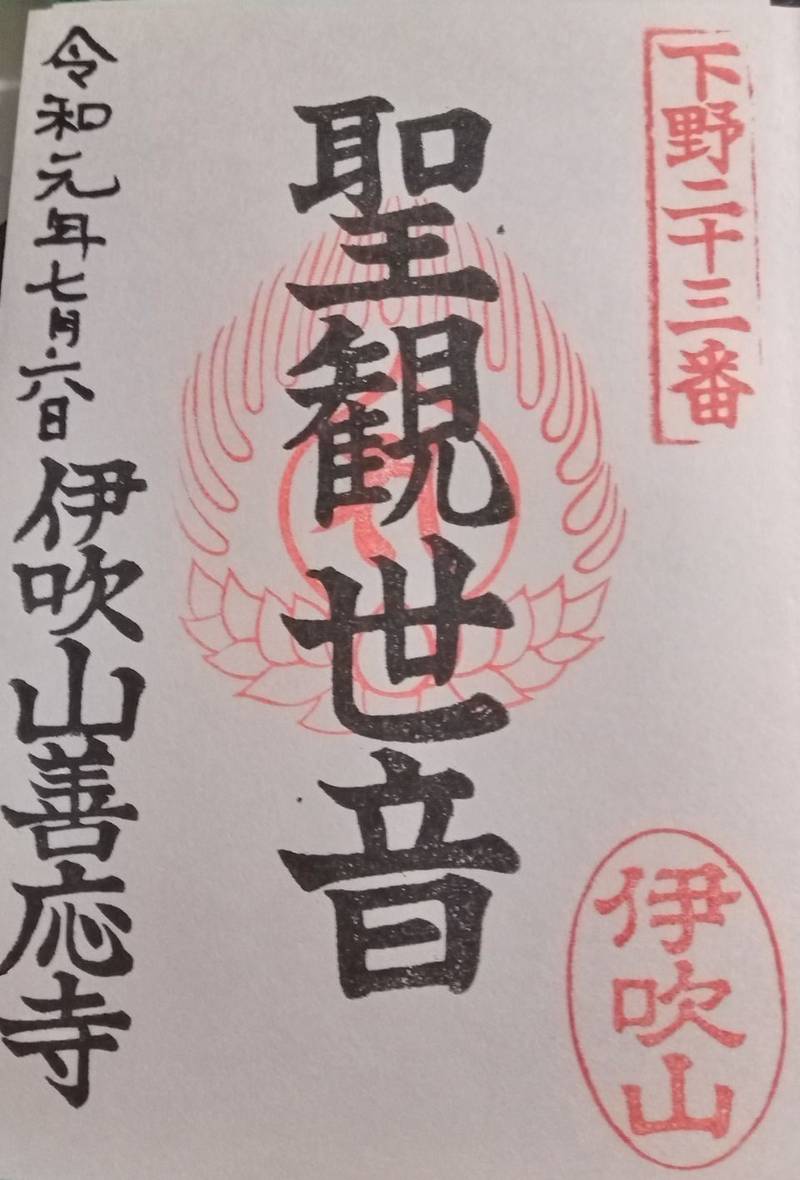 下野二十三番
聖観世音
伊吹山
令和元年七月六日
伊吹山善応寺